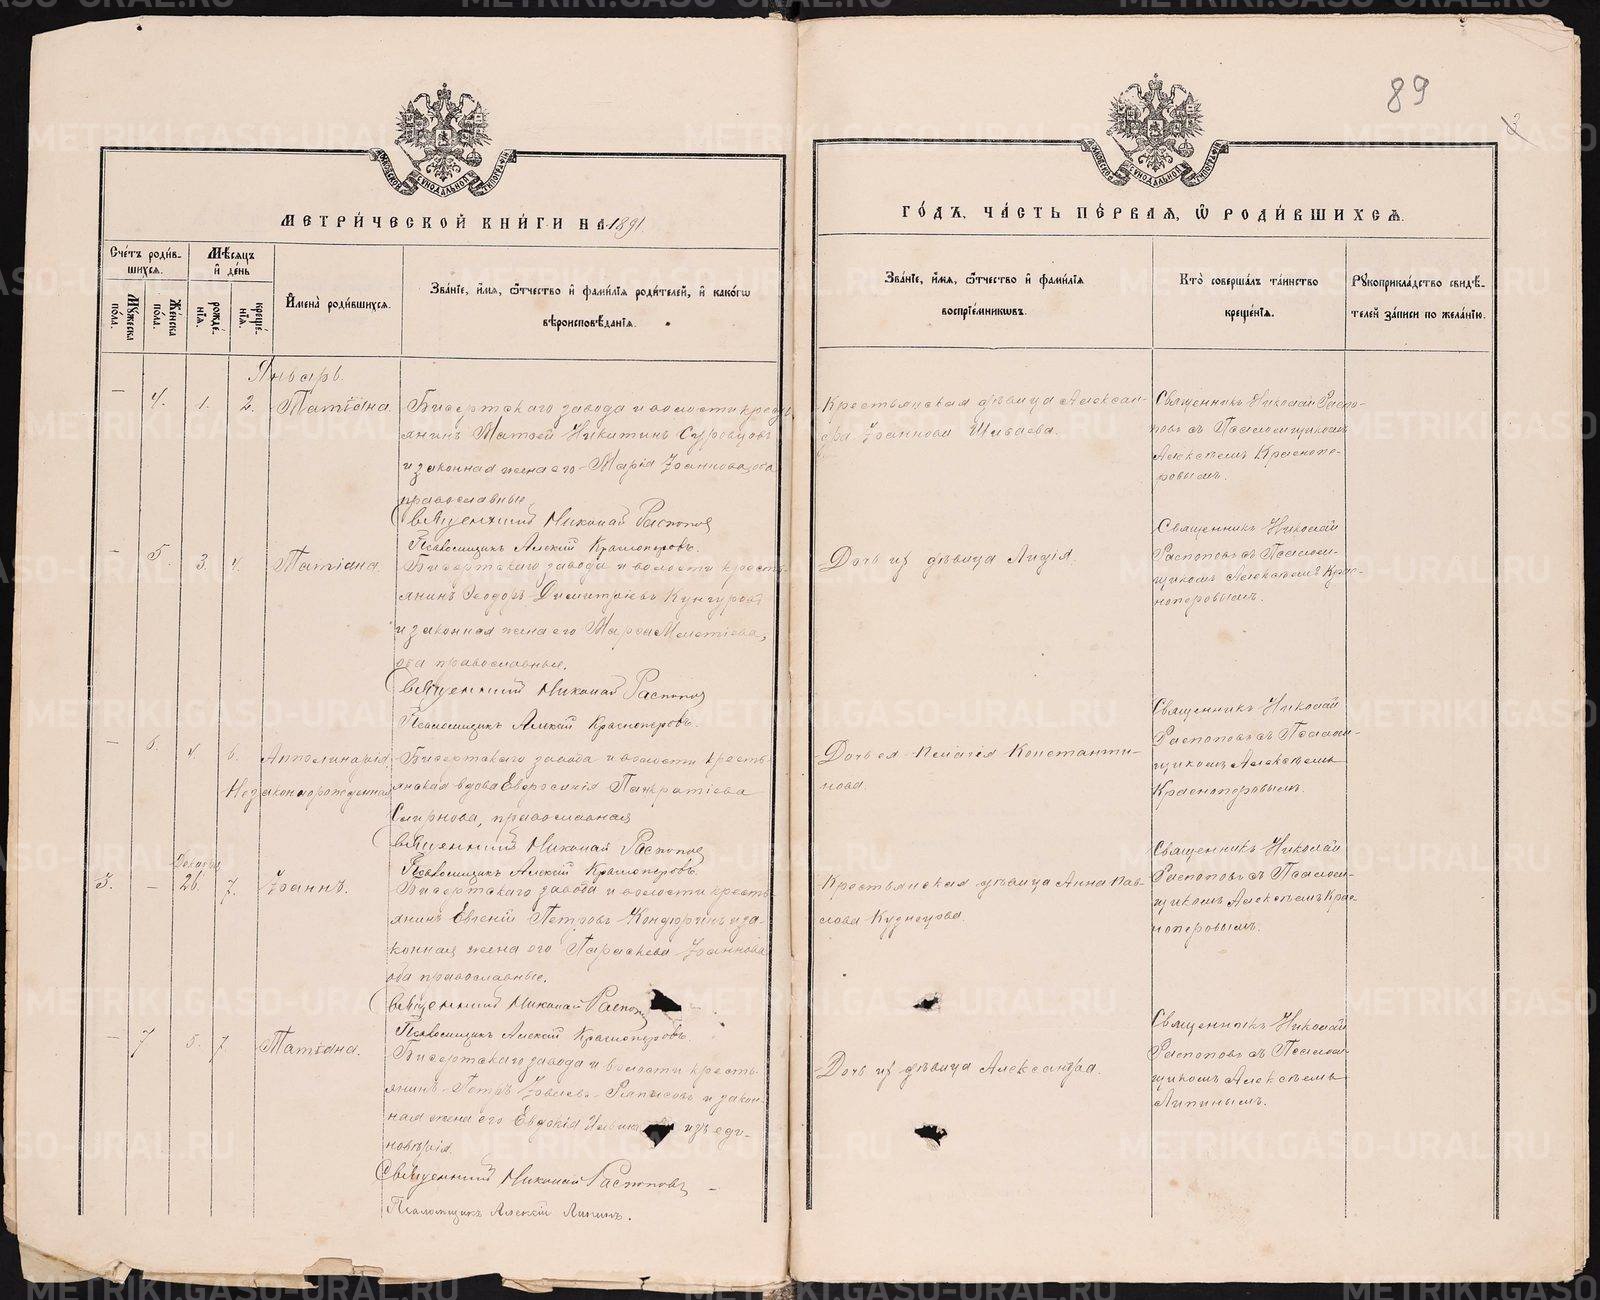 89
3
МЕТРИ́ЧЕСКОЙ КНИ́ГИ НА 1891
ГО́ДЪ, ЧА́СТЬ ПЕ́РВАЯ, Ѡ҆ РОДИ́ВШИХСѦ.
Сче́тъ роди́в-
шихсѧ.
Мѣ́сѧцъ
и҆ де́нь
Мꙋ́жеска
по́ла.
Же́нска
по́ла.
рожде́-
нїѧ.
креще́-
нїѧ.
И҆мена̀ роди́вшихсѧ.
Зва́нїе, и҆́мѧ, ѻ҆́тчество и҆ фами́лїѧ роди́телей, и҆ како́гѡ
вѣроисповѣ́данїѧ.
Зва́нїе, и҆́мѧ, ѻ҆́тчество и҆ фами́лїѧ
воспрїе́мникѡвъ.
Кто̀ соверша́лъ та́инство
креще́нїѧ.
Рꙋкоприкла́дство свидѣ́-
телей за́писи по жела́нїю.
Январь.
— 4. 1. 2. Татіана. Бисертскаго завода и волости кресть-
янинъ Матѳей Никитинъ Суровцовъ
и законная жена его Марія Іоаннова, оба
православные
Священникъ Николай Распопов
Псаломщикъ Алексій Красноперовъ.
Крестьянская дѣвица Алексан-
дра Іоаннова Шиваева.
Священникъ Николай Распо-
повъ съ Псаломщикомъ
Алексѣемъ Красно-
перовымъ.
— 5. 3. 4. Татіана. Бисертскаго завода и волости кресть-
янинъ Ѳеодоръ Димитріевъ Кунгуровъ
и законная жена его Марѳа Мелетіева,
оба православные.
Священникъ Николай Распопов
Псаломщикъ Алексій Красноперовъ.
Дочь их дѣвица Лидія.
Священникъ Николай
Распоповъ съ Псалом-
щикомъ Алексѣемъ Крас-
ноперовымъ.
— 6. 4. 6. Апполинарія Бисертскаго завода и волости кресть-
Незаконнорожденная янская вдова Евфросинія Панкратіева
Смирнова, православная
Священникъ Николай Распопов
Псаломщикъ Алексій Красноперовъ.
Дочь ея Пелагія Константи-
нова.
Священникъ Николай
Распоповъ съ Псалом-
щикомъ Алексѣемъ
Красноперовымъ.
Декабрь
3. — 26. 7. Іоаннъ. Бисертскаго завода и волости кресть-
янинъ Евгеній Петровъ Кондюринъ и за-
конная жена его Параскева Іоаннова
оба православные.
Священникъ Николай Распоп
Псаломщикъ Алексій Красноперовъ.
Крестьянская дѣвица Анна Пав-
лова Кузнецова.
Священникъ Николай
Распоповъ съ Псалом-
щикомъ Алексѣемъ Крас-
ноперовымъ.
— 7 5. 7. Татіана. Бисертскаго завода и волости кресть-
янинъ Петръ Іовлевъ и закон-
ная жена его Евдокія изъ еди-
новѣрія.
Священникъ Николай Распоповъ
Псаломщикъ Алексій Липинъ.
Дочь их дѣвица Александра.
Священникъ Николай
Распоповъ съ Псалом-
щикомъ Алексѣемъ
Липинымъ.
METRIKI.GASO-URAL.RU